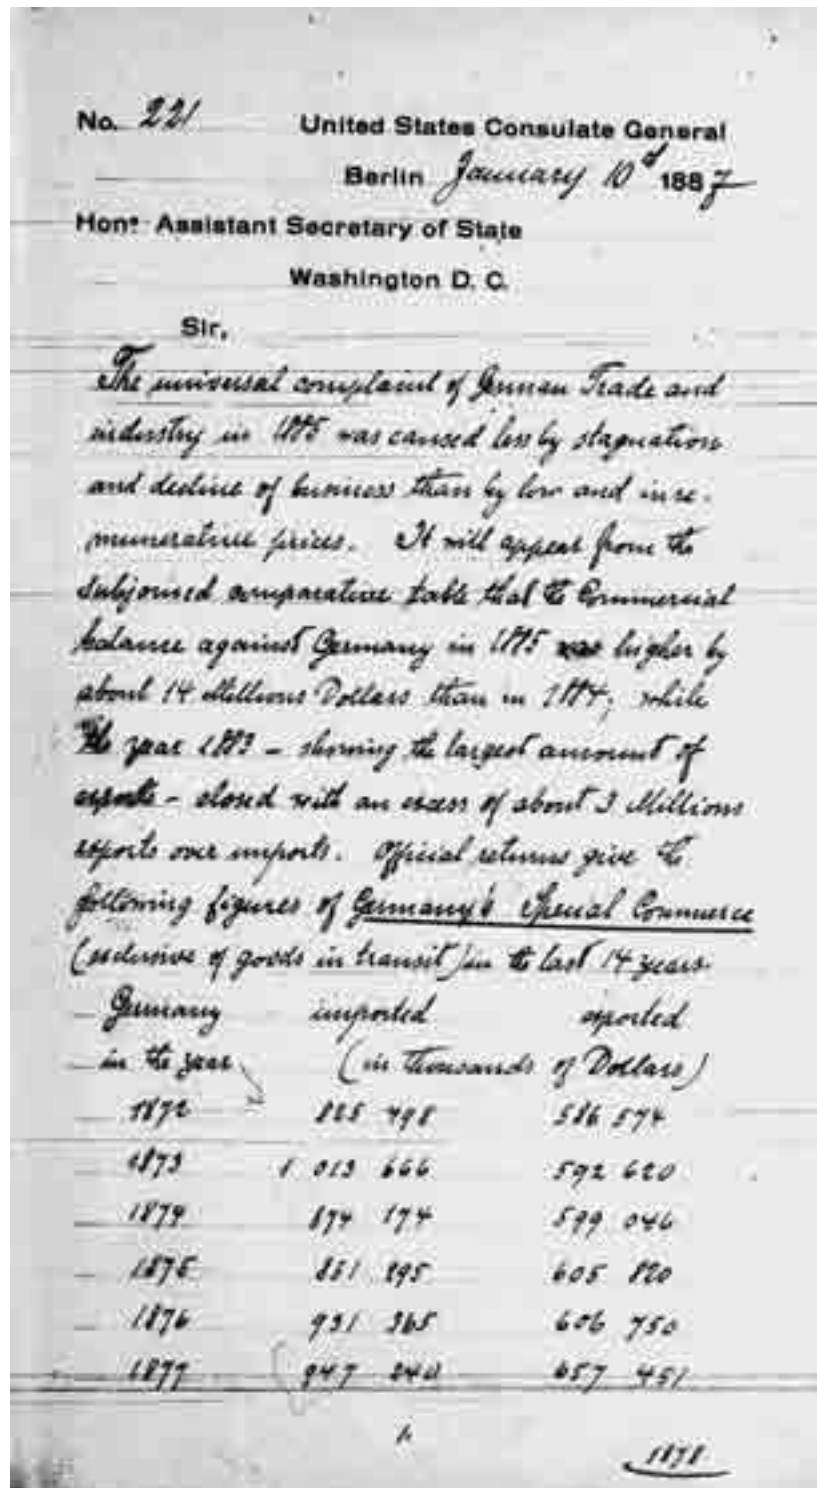 No. 221 United States Consulate General
Berlin January 10 d 1887
Hon. Assistant Secretary of State
Washington D. C.
Sir,
The universal complaint of German Trade and
industry in 1885 was caused less by stagnation
and decline of business than by low and inre-
munerative prices. It will appear from the
subjoined comparative table that the Commercial
balance against Germany in 1885 was higher by
about 14 Millions Dollars than in 1884; while
the year 1883 – showing the largest amount of
exports – closed with an excess of about 3 Millions
exports over imports. Official returns give the
following figures of Germany's Special Commerce
(exclusive of goods in transit) in the last 14 years.
Germany imported exported
in the year (in thousands of Dollars)
1872 825 498 586 574
1873 1 013 666 592 620
1874 874 174 599 046
1875 851 295 605 820
1876 931 365 606 750
1877 947 240 657 451
1878